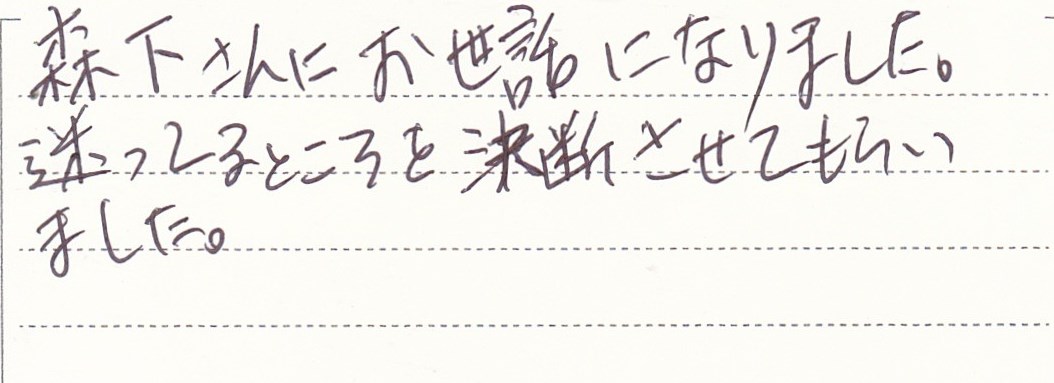 森下さんにお世話になりました。
迷ってるところを決断させてもらい
ました。